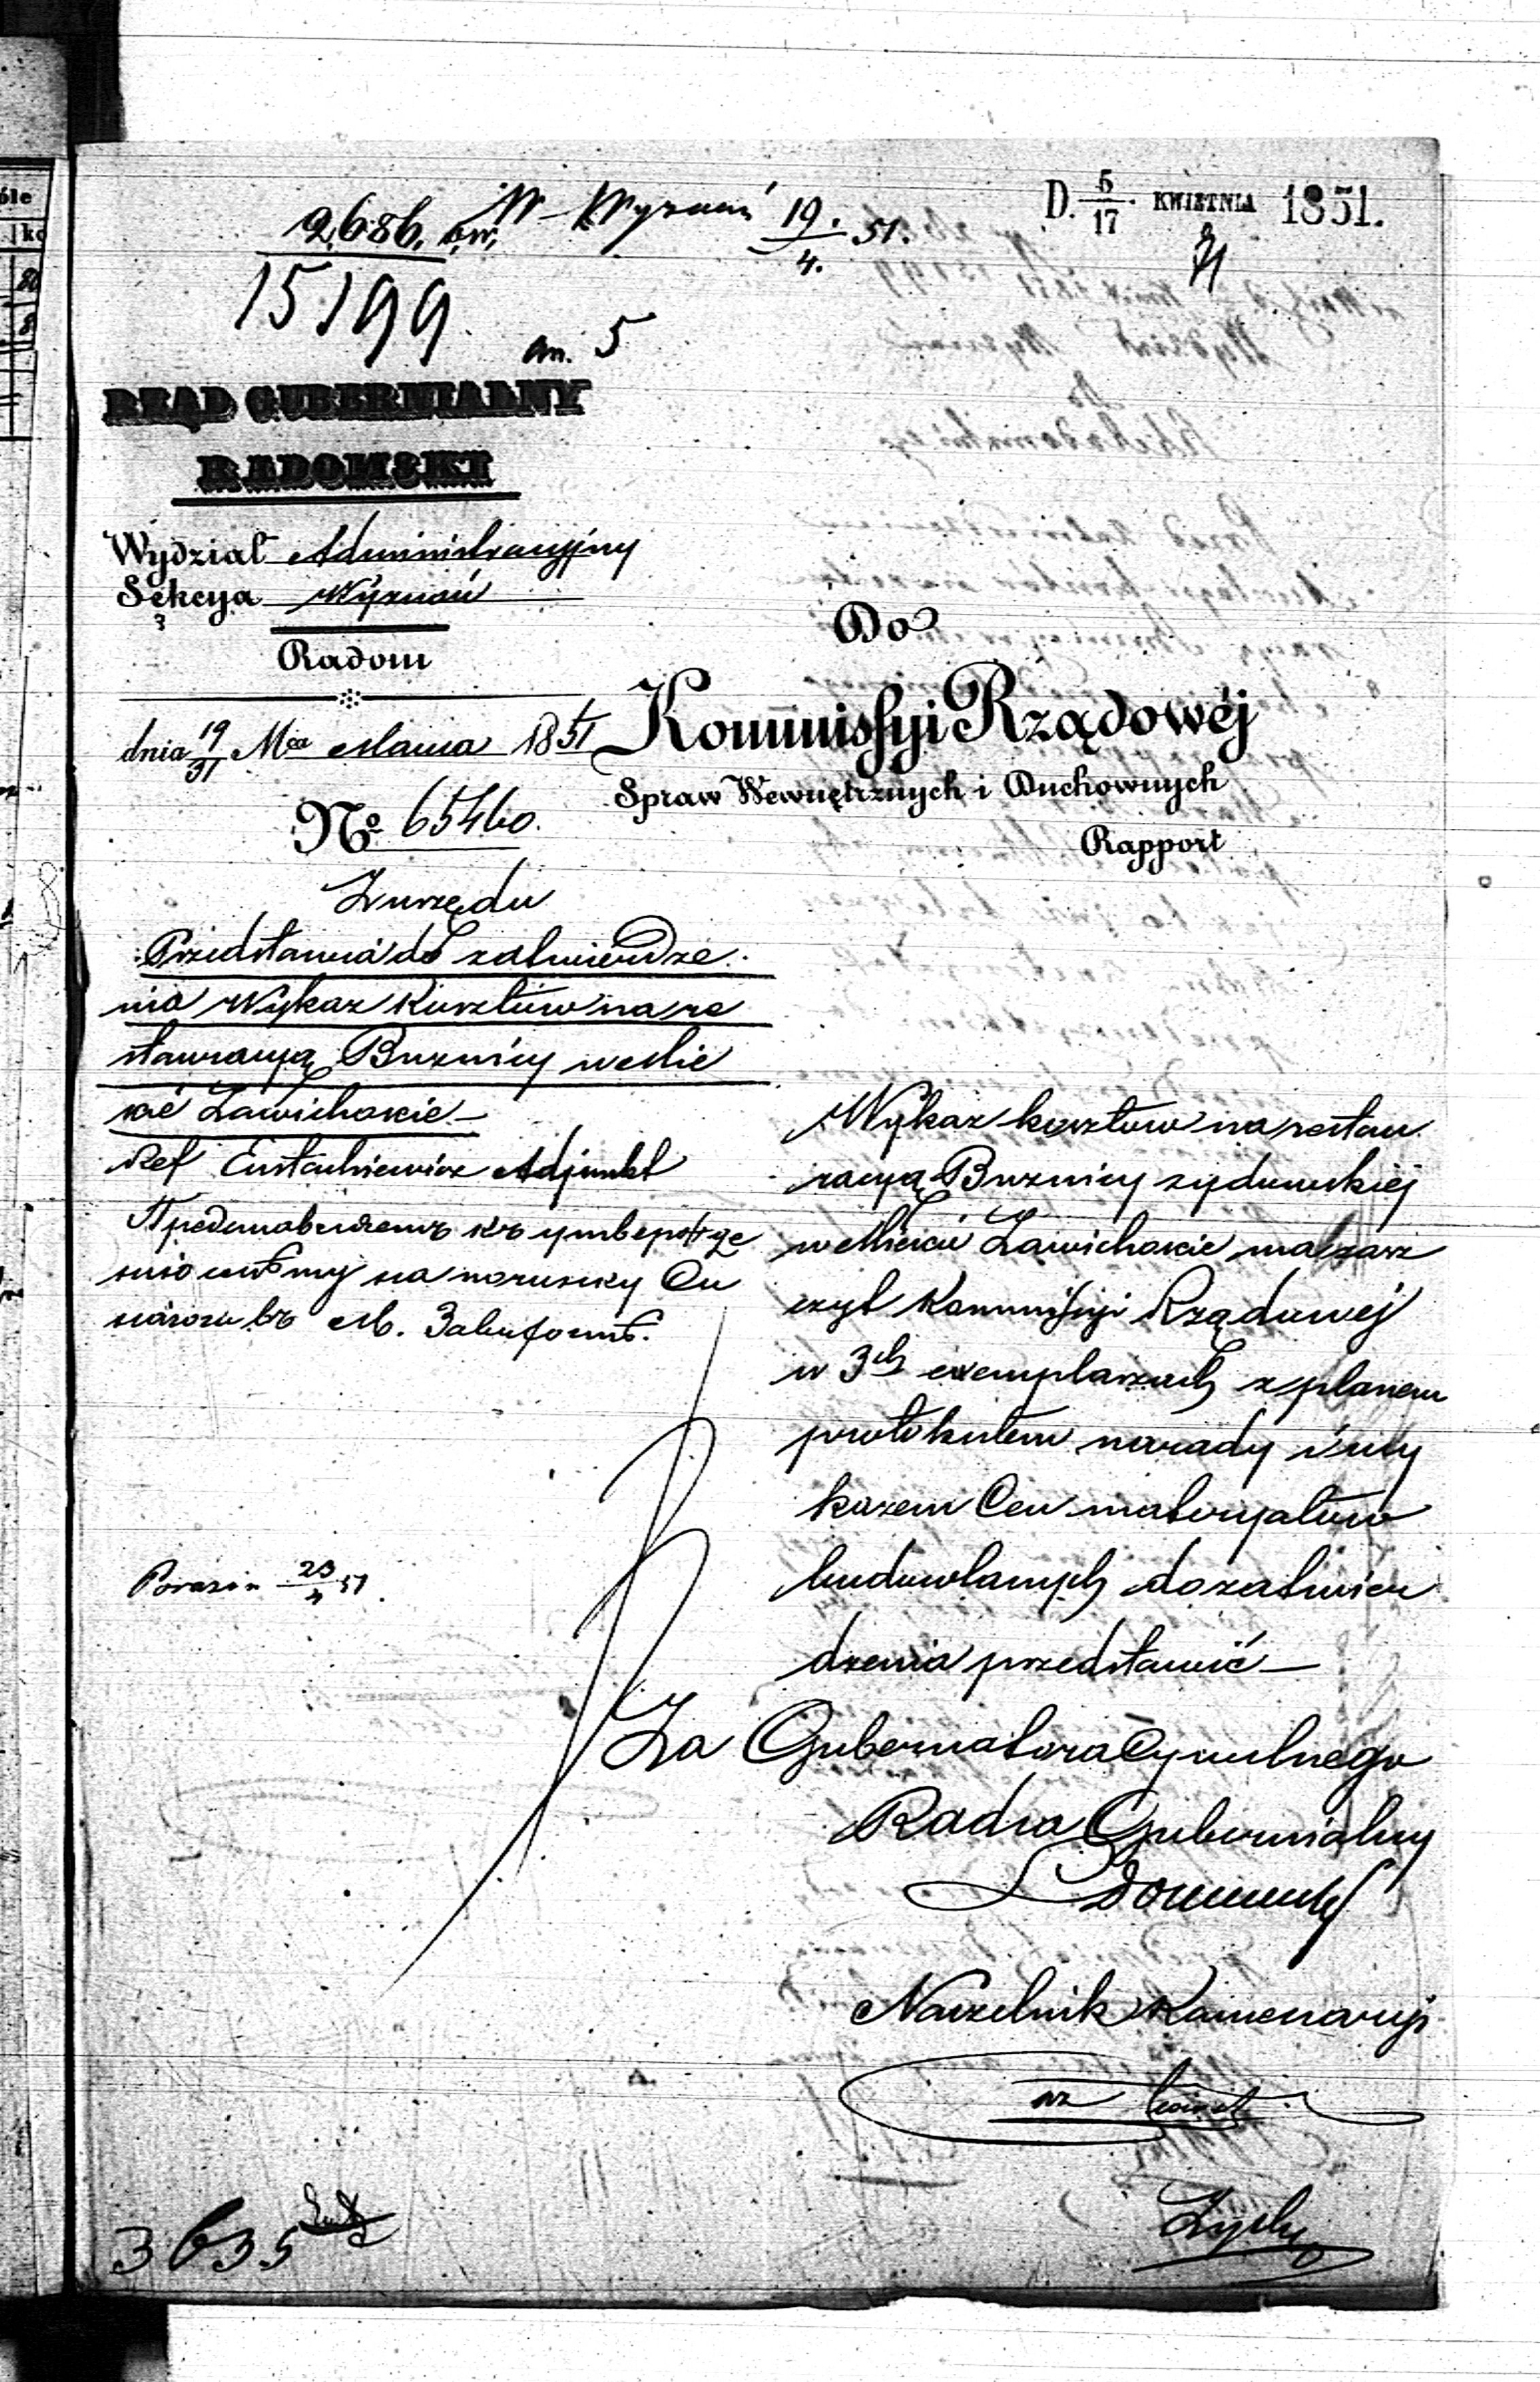 2686.
W. Wyznań 19./4. 51.
D. 5/17. KWIETNIA 1851.
15199
an. 5
RZĄD GUBERNIALNY
RADOMSKI
Wydział Administracyjny
Sekcya Wyznań
Radom
dnia 19/31 Mca Marca 1851
No 65460.
Z urzędu
Przedstawia do zatwierdze-
nia Wykaz Kosztów na re
stauracyą Bużnicy w Mie
ście Zawichoście
Ref Eustachiewicz Adjunkt
Представленіемъ къ утвержде
нію смѣты на починку Си
нагоги въ М. Завихостѣ.
Do
Kommissyi Rządowéj
Spraw Wewnętrznych i Duchownych
Rapport
Wykaz kosztów na restau
racyą Bużnicy żydowskiéj
w Mieście Zawichoście ma zasz
czyt Kommissyi Rządowéj
w 3ch exemplarzach z planem
protokułem narady i wy
kazem Cen materyałów
budowlanych do zatwier
dzenia przedstawić
Za Gubernatora Cywilnego
Radca Gubernialny
Naczelnik Kancellaryi
3635